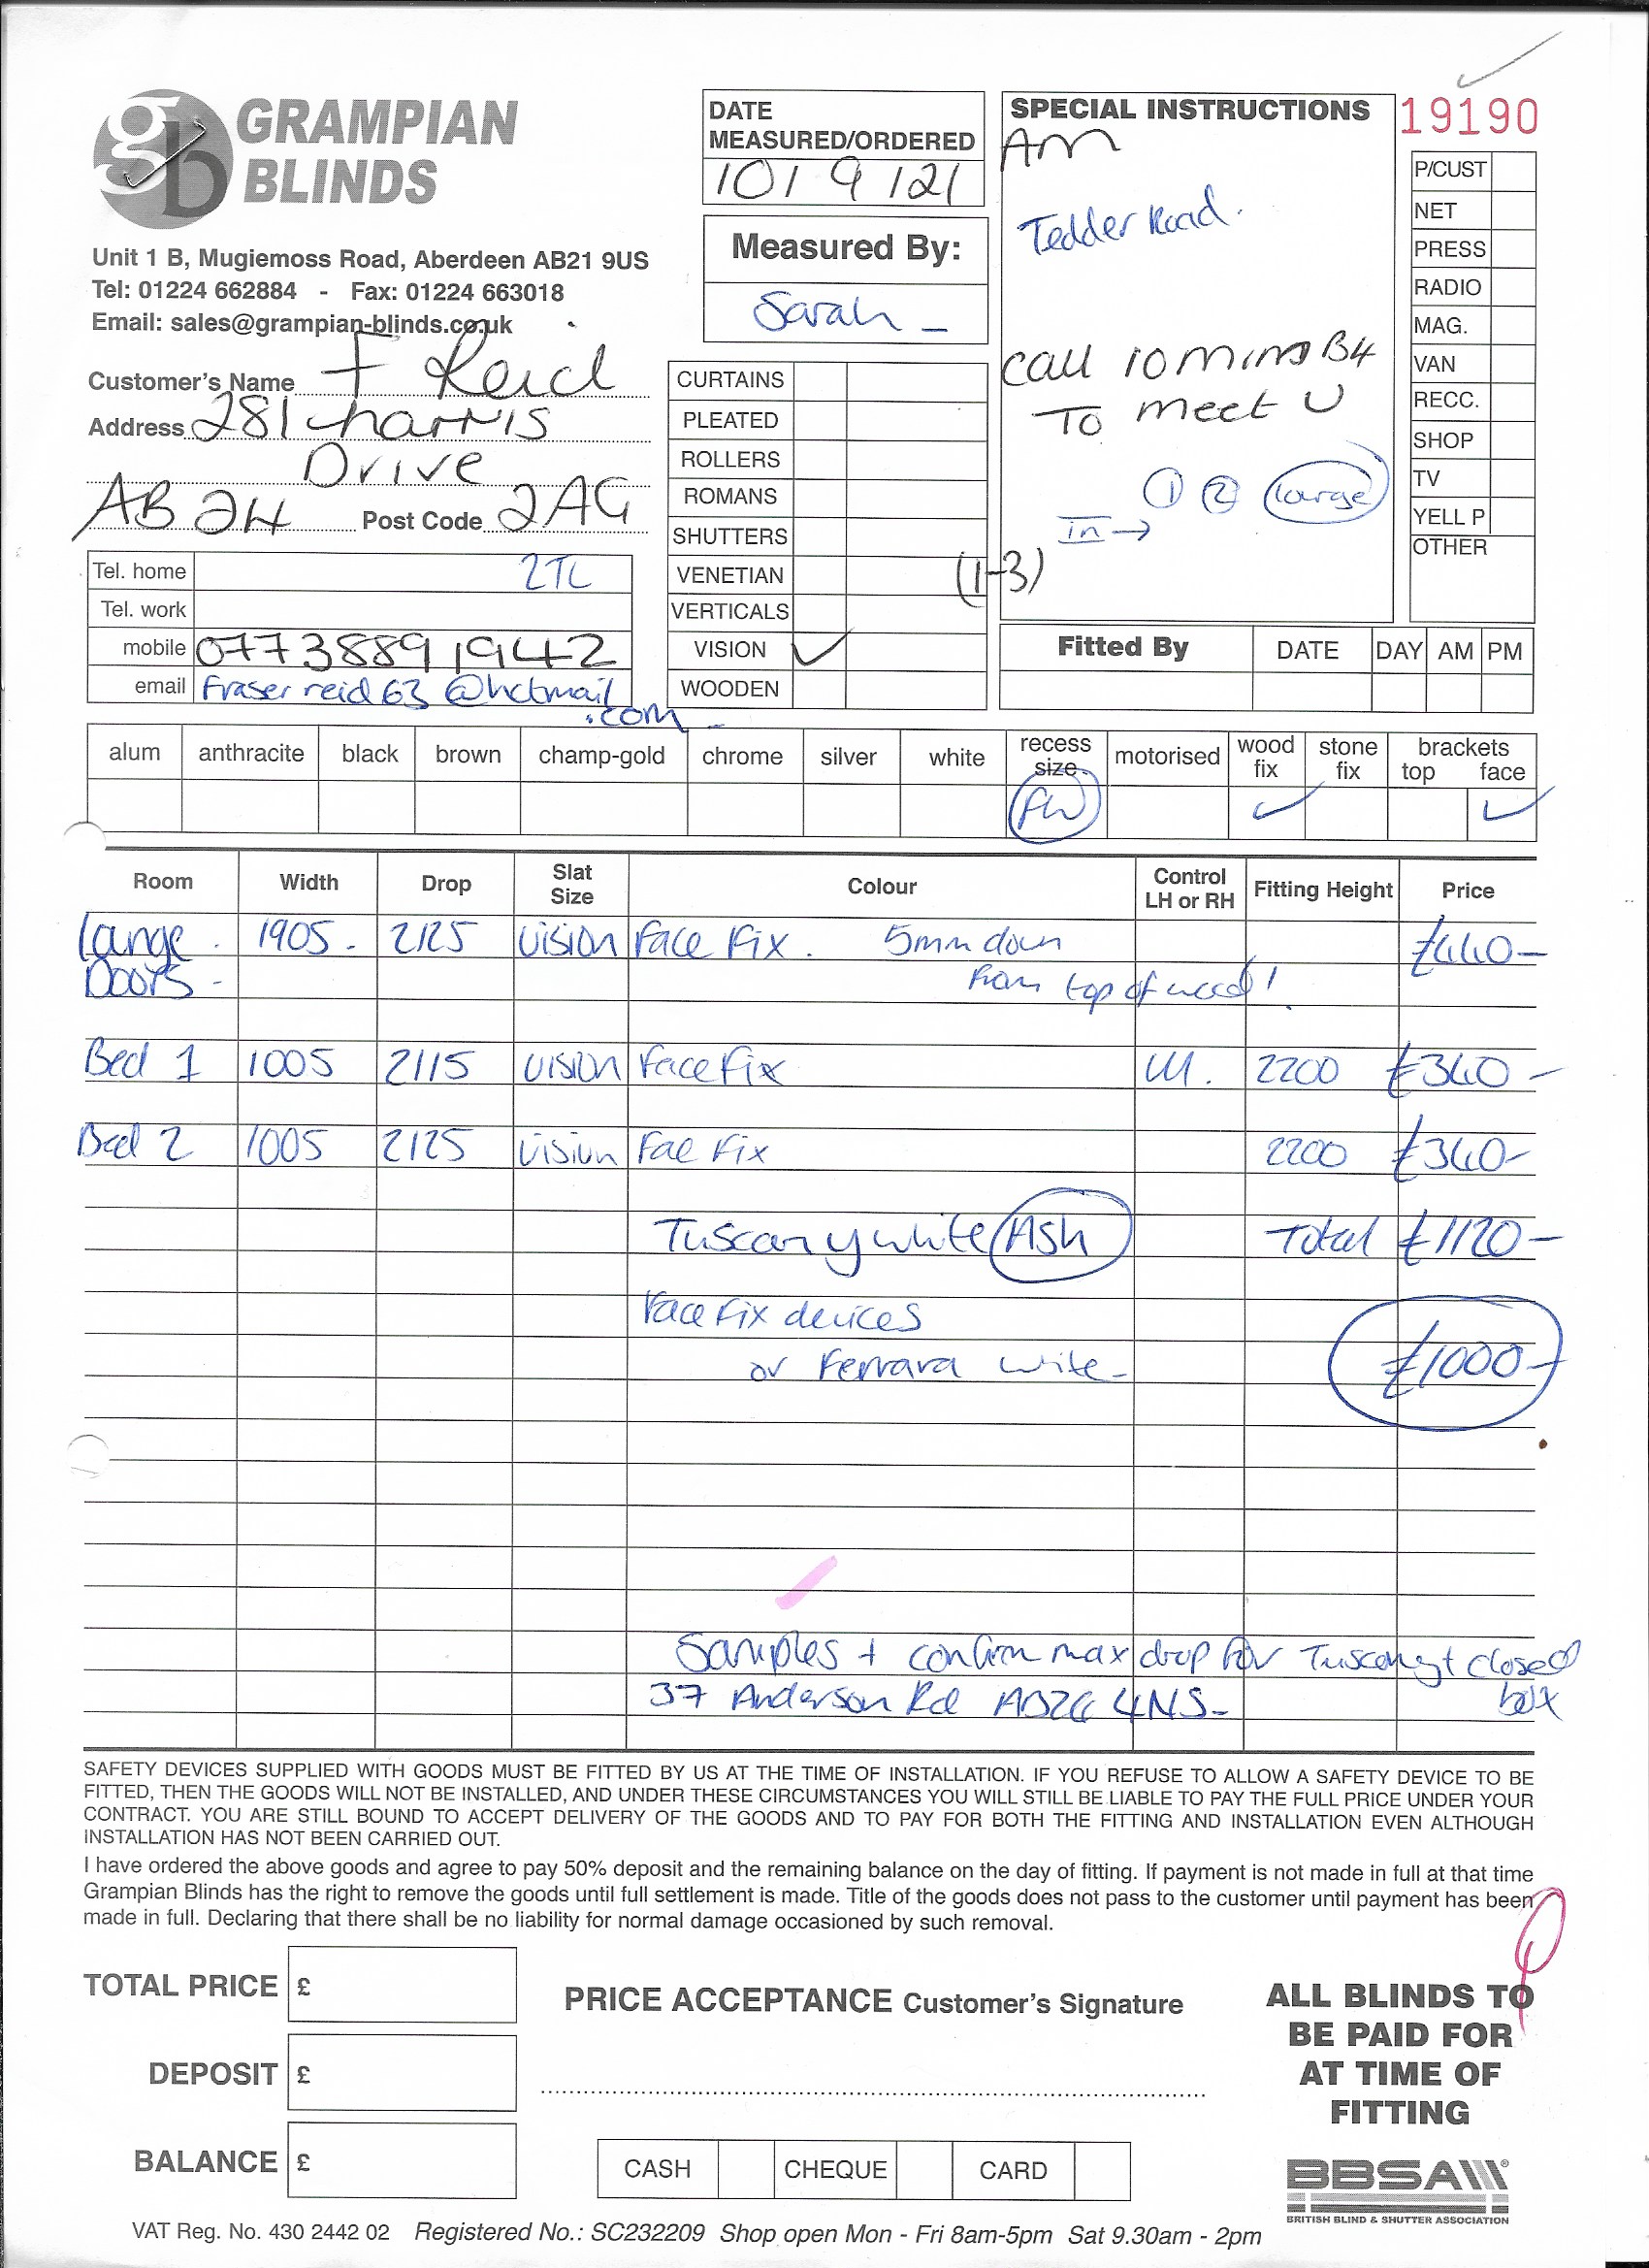 GRAMPIAN
BLINDS
gb
Unit 1 B, Mugiemoss Road, Aberdeen AB21 9US
Tel: 01224 662884 - Fax: 01224 663018
Email: sales@grampian-blinds.co.uk
Customer's Name F Reid
Address 281 harris
Drive
AB24 Post Code 2AG
Tel. home 2TL
Tel. work
mobile 07738891942
email Fraserreid63@hotmail
.com
DATE
MEASURED/ORDERED
10/9/21
Measured By:
Sarah
CURTAINS
PLEATED
ROLLERS
ROMANS
SHUTTERS
VENETIAN
VERTICALS
VISION ✓
WOODEN
(1-3)
SPECIAL INSTRUCTIONS
AM
Tedder Road.
call 10 mins B4
To meet U
1 2 lounge
in →
19190
P/CUST
NET
PRESS
RADIO
MAG.
VAN
RECC.
SHOP
TV
YELL P
OTHER
Fitted By DATE DAY AM PM
alum anthracite black brown champ-gold chrome silver white recess size motorised wood fix stone fix brackets top face
FW ✓ ✓
Room Width Drop Slat Size Colour Control LH or RH Fitting Height Price
Lounge 1905 2125 Vision Face Fix. 5mm down £440-
Doors from top of wood!
Bed 1 1005 2115 Vision Face Fix LH. 2200 £340-
Bed 2 1005 2125 Vision Fae Fix 2200 £340-
Tuscany white Ash Total £1120-
Face Fix devices
or Ferrara white £1000-
Samples + confirm max drop for Tuscany + closed
box
37 Anderson Rd 4NS
SAFETY DEVICES SUPPLIED WITH GOODS MUST BE FITTED BY US AT THE TIME OF INSTALLATION. IF YOU REFUSE TO ALLOW A SAFETY DEVICE TO BE
FITTED, THEN THE GOODS WILL NOT BE INSTALLED, AND UNDER THESE CIRCUMSTANCES YOU WILL STILL BE LIABLE TO PAY THE FULL PRICE UNDER YOUR
CONTRACT. YOU ARE STILL BOUND TO ACCEPT DELIVERY OF THE GOODS AND TO PAY FOR BOTH THE FITTING AND INSTALLATION EVEN ALTHOUGH
INSTALLATION HAS NOT BEEN CARRIED OUT.
I have ordered the above goods and agree to pay 50% deposit and the remaining balance on the day of fitting. If payment is not made in full at that time
Grampian Blinds has the right to remove the goods until full settlement is made. Title of the goods does not pass to the customer until payment has been
made in full. Declaring that there shall be no liability for normal damage occasioned by such removal.
TOTAL PRICE £
DEPOSIT £
BALANCE £
PRICE ACCEPTANCE Customer's Signature
CASH CHEQUE CARD
ALL BLINDS TO
BE PAID FOR
AT TIME OF
FITTING
BBSA
BRITISH BLIND & SHUTTER ASSOCIATION
VAT Reg. No. 430 2442 02 Registered No.: SC232209 Shop open Mon - Fri 8am-5pm Sat 9.30am - 2pm